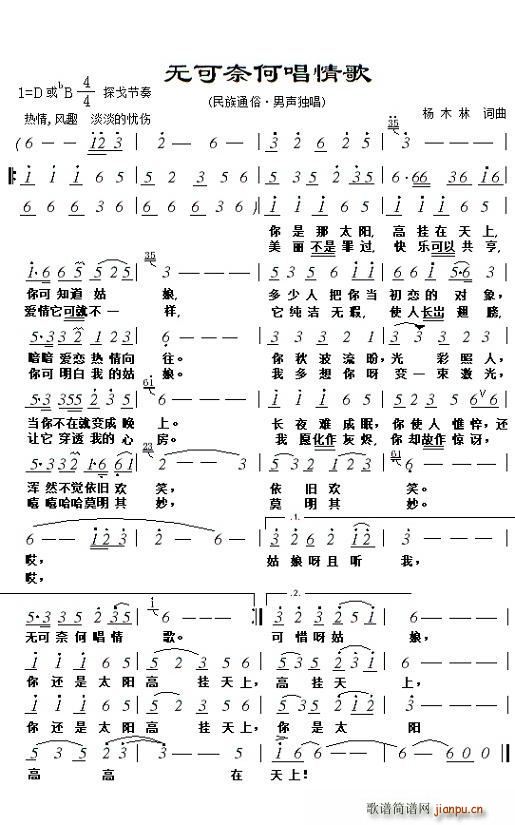 无可奈何唱情歌
1=D 或 bB 4/4 探戈节奏
(民族通俗·男声独唱)
杨木林 词曲
热情,风趣 淡淡的忧伤
你是那太阳, 高挂在天上,
美丽不是罪过, 快乐可以共享,
你可知道姑 娘, 多少人把你当初恋的对象,
爱情它可就不一 样, 它纯洁无瑕, 使人长出翅膀,
暗暗爱恋热情向 往。 你秋波流盼,光 彩照人,
你可明白我的姑 娘。 我多想你呀变一束激光,
当你不在就变成晚 上。 长夜难成眠,你使人憔悴,还
让它穿透我的心 房。 我愿化作灰烬, 你却故作惊讶,
浑然不觉依旧欢 笑, 依旧欢 笑。
嘻嘻哈哈莫明其 妙, 莫明其 妙。
哎, 姑娘呀且听 我,
哎,
无可奈何唱情 歌。 可惜呀姑 娘,
你还是太阳高 挂天上,高挂天 上,
你还是太阳高 挂天上, 你是太 阳
高 高 在 天上!
歌谱简谱网
jianpu.cn